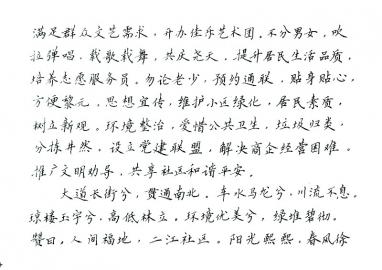 满足群众文艺需求，开办佳乐艺术团。不分男女，吹
拉弹唱，载歌载舞，共庆尧天，提升居民生活品质，
培养志愿服务员。勿论老少，预约通联，贴身贴心，
方便黎元，思想宣传，维护小区绿化，居民素质，
树立新观。环境整治，爱惜公共卫生，垃圾归类，
分拣井然，设立党建联盟，解决商企经营困难。
推广文明劝导，共享社区和谐平安。
大道长街兮，贯通南北。车水马龙兮，川流不息。
琼楼玉宇兮，高低林立。环境优美兮，绿堆碧彻。
赞曰，人间福地，二江社区。阳光熙熙，春风徐